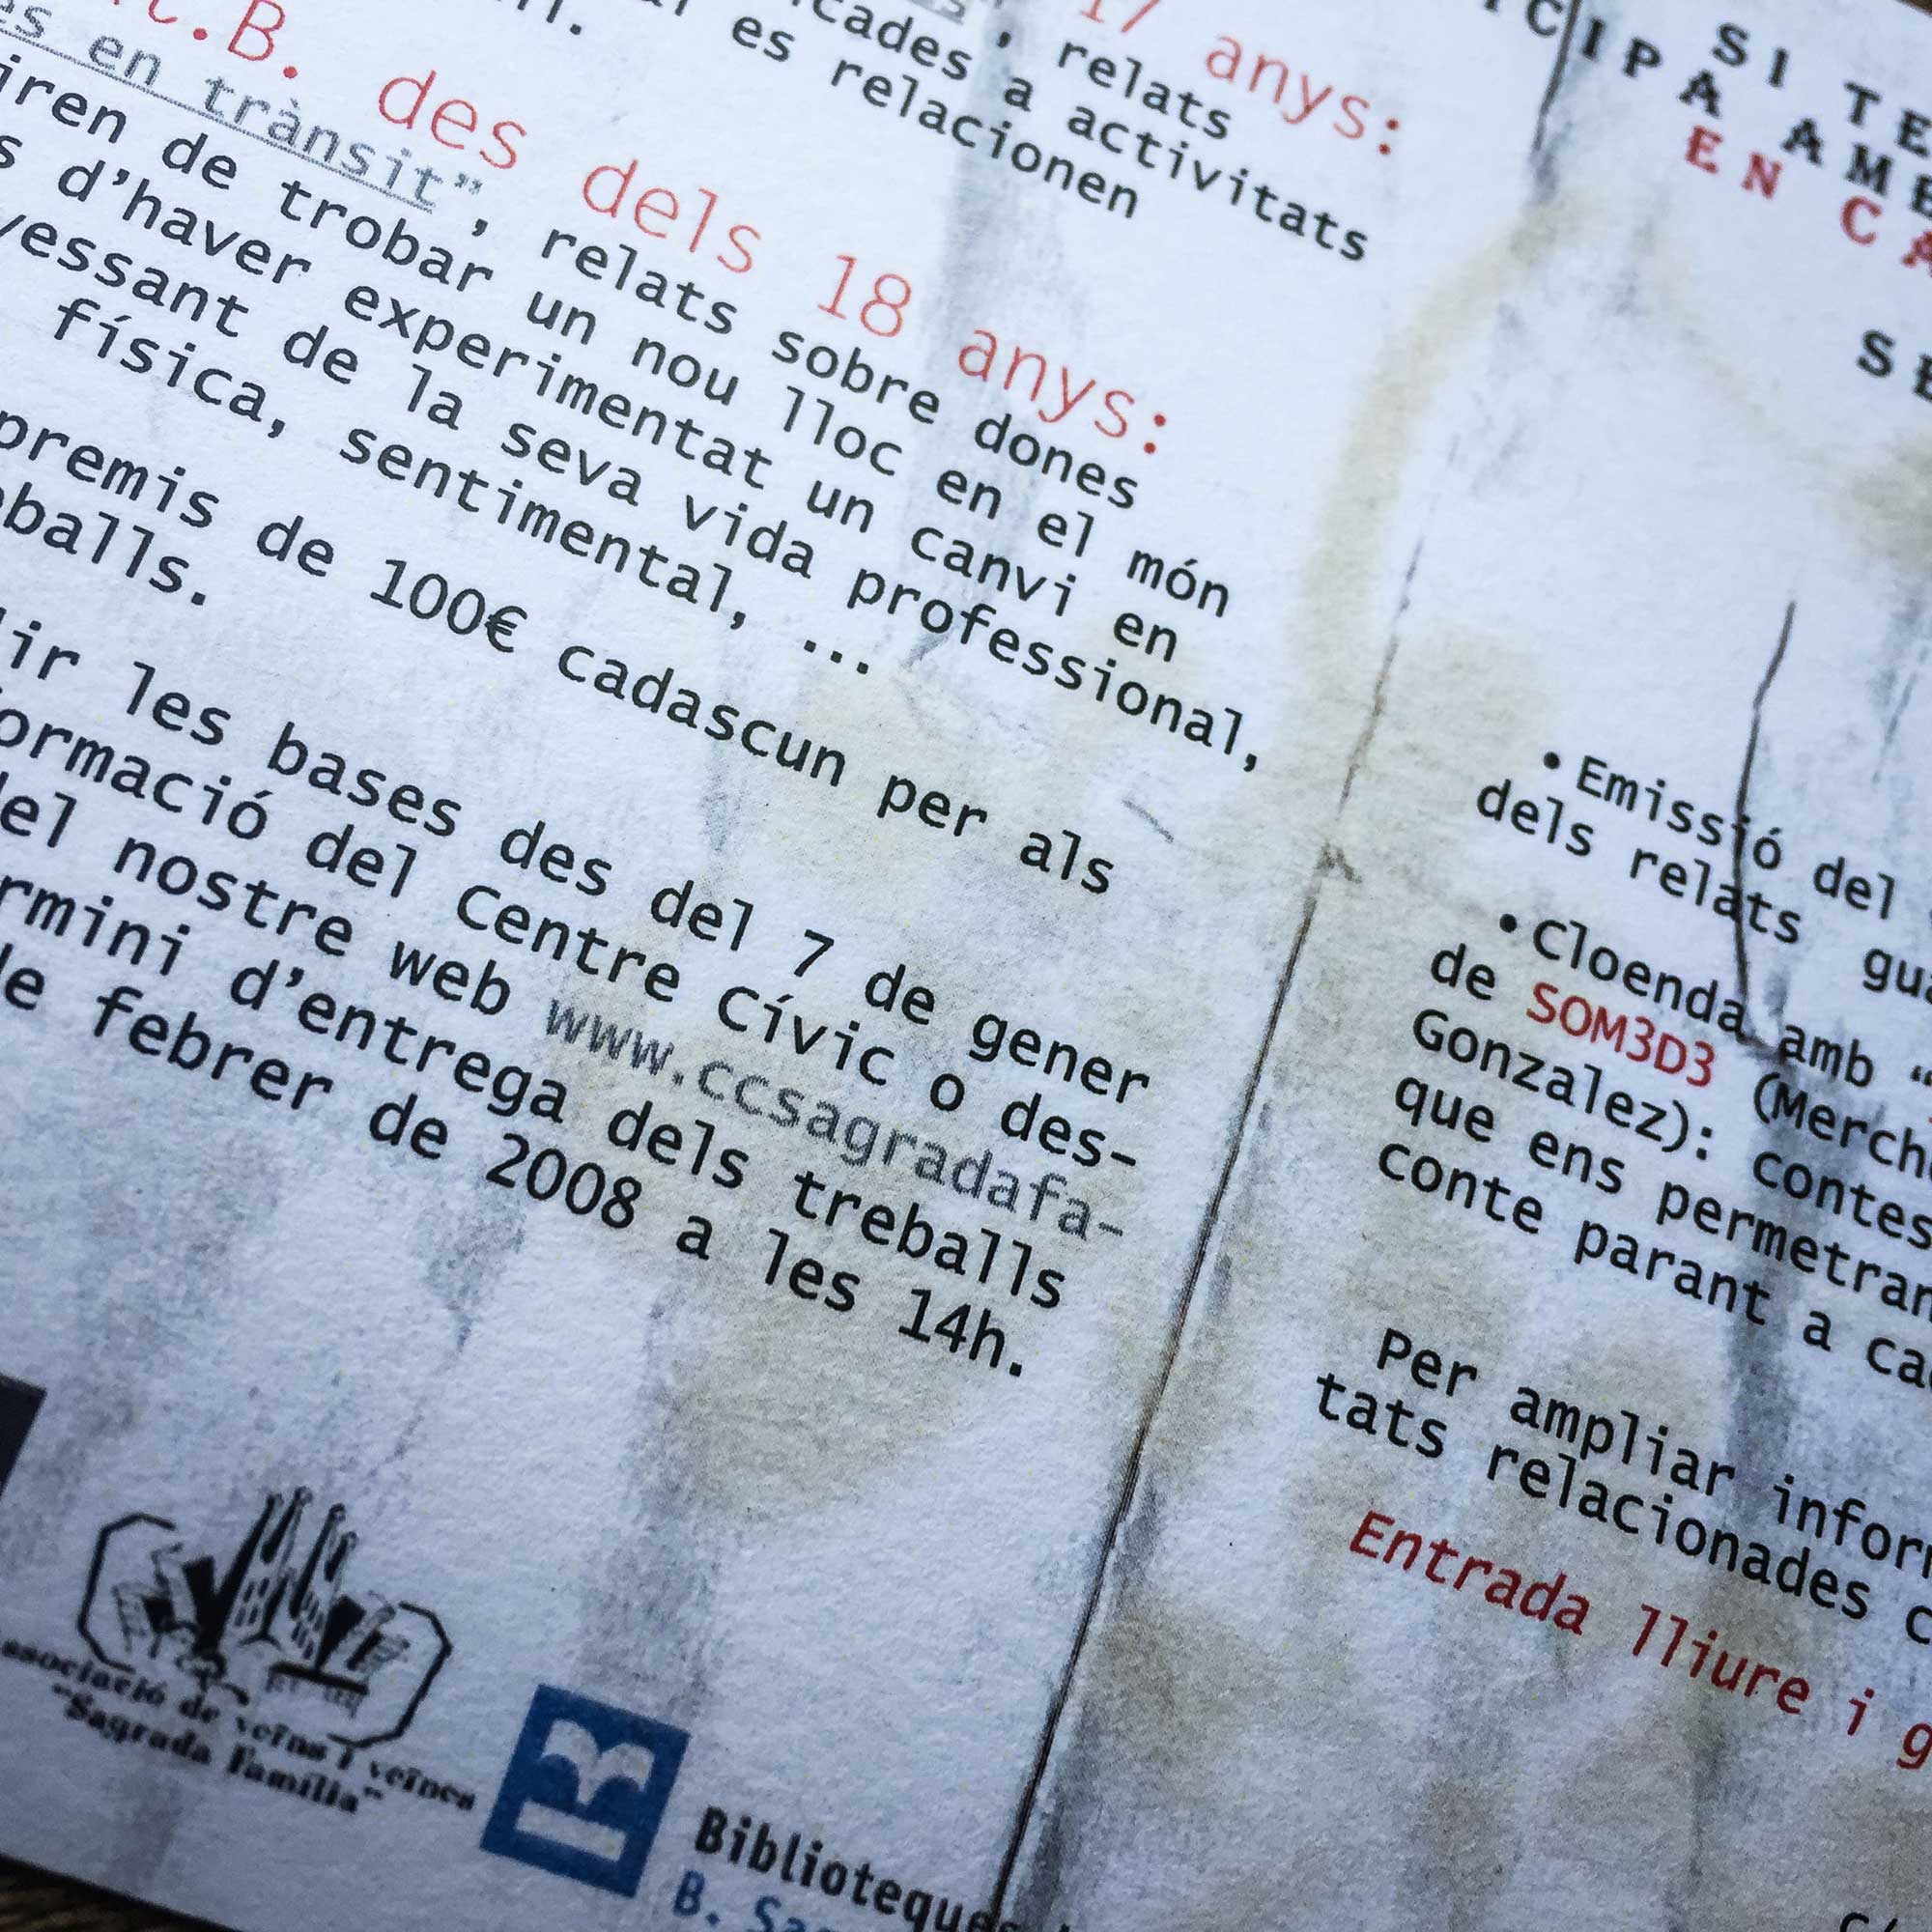 17 anys:
, relats
cades a activitats
es relacionen
t.B. des dels 18 anys:
en trànsit", relats sobre dones
iren de trobar un nou lloc en el món
s d'haver experimentat un canvi en
vessant de la seva vida professional,
física, sentimental, ...
premis de 100€ cadascun per als
balls.
ir les bases des del 7 de gener
ormació del Centre Cívic o des-
el nostre web www.ccsagradafa-
rmini d'entrega dels treballs
de febrer de 2008 a les 14h.
associació de veïns i veïnes
"Sagrada Família"
B
Biblioteques
B. Sag
SI TE
ICIPA AMB
EN CA
SE
•Emissió del
dels relats gua
•Cloenda amb "
de SOM3D3 (Merch
Gonzalez): contes
que ens permetran
conte parant a ca
Per ampliar inform
tats relacionades c
Entrada lliure i g